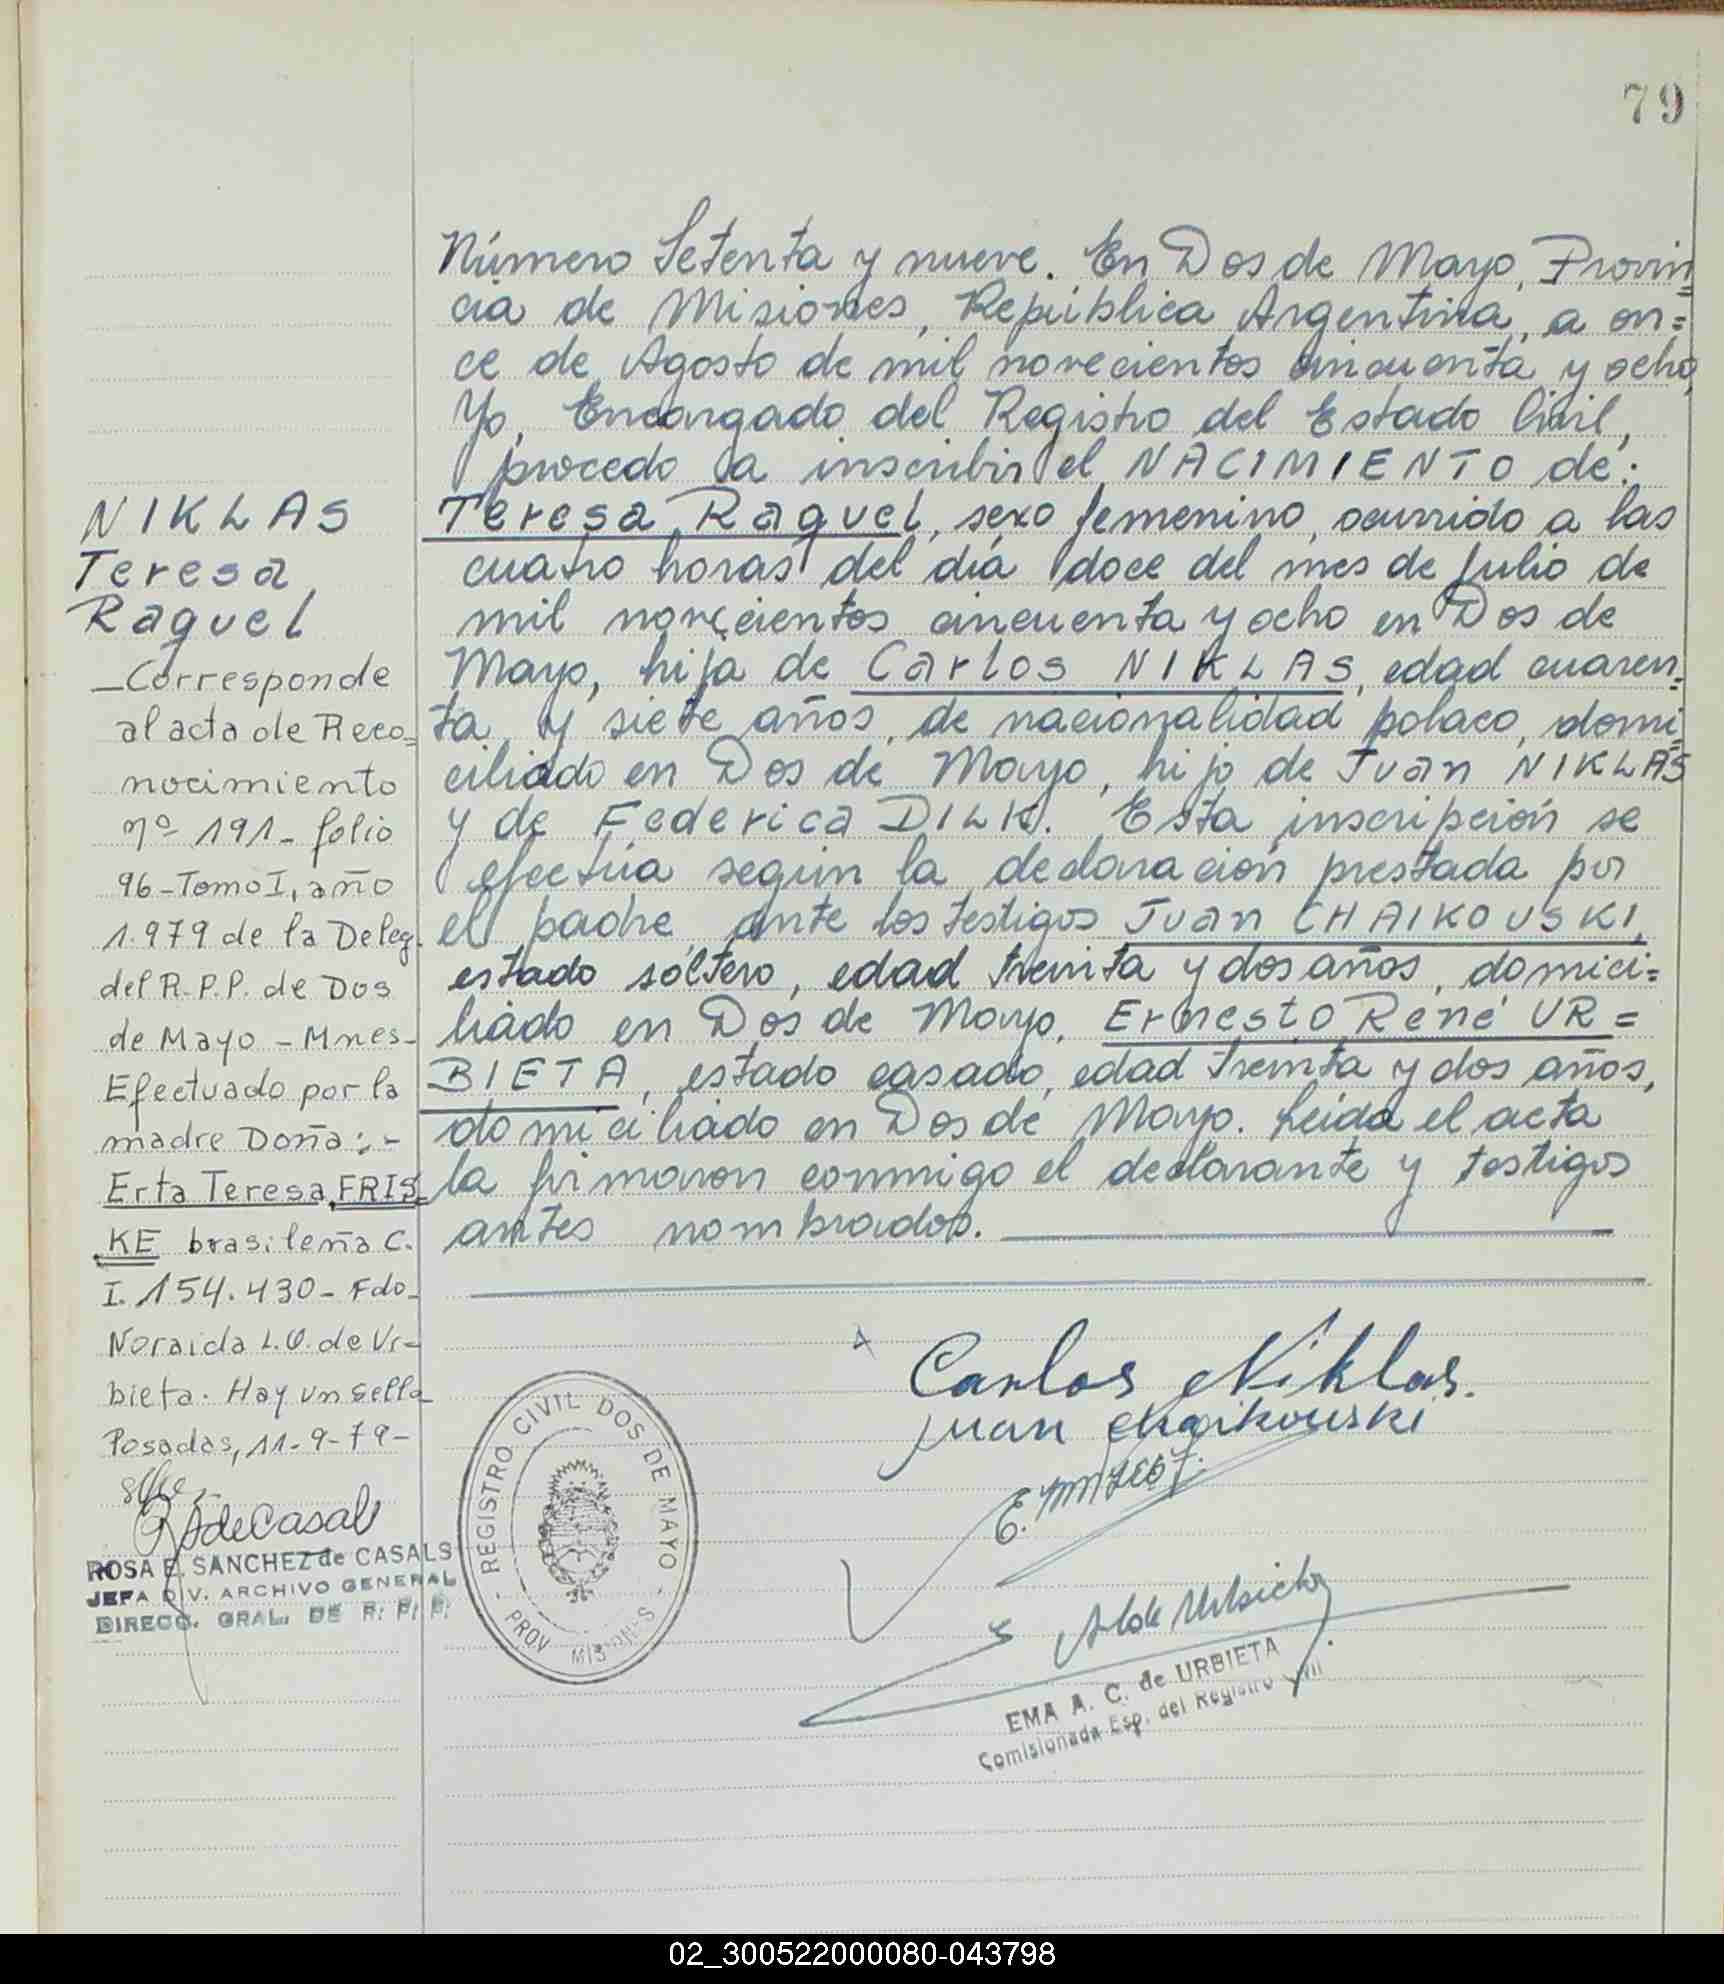 79
Número Setenta y nueve. En Dos de Mayo, Provin=
cia de Misiones, República Argentina, a on=
ce de Agosto de mil novecientos cincuenta y ocho,
Yo, Encargado del Registro del Estado Civil,
procedo a inscribir el NACIMIENTO de:
Teresa Raquel, sexo femenino, ocurrido a las
cuatro horas del día doce del mes de Julio de
mil novecientos cincuenta y ocho en Dos de
Mayo, hija de Carlos NIKLAS, edad cuaren=
ta y siete años, de nacionalidad polaco, domi=
ciliado en Dos de Mayo, hijo de Juan NIKLAS
y de Federica DILK. Esta inscripción se
efectúa según la declaración prestada por
el padre ante los testigos Juan CHAIKOUSKI,
estado sóltero, edad treinta y dos años, domici=
liado en Dos de Mayo, Ernesto René UR=
BIETA, estado casado, edad treinta y dos años,
domiciliado en Dos de Mayo. Leída el acta
la firmaron conmigo el declarante y testigos
antes nombrados.
NIKLAS
Teresa
Raquel
_Corresponde
al acta de Reco=
nocimiento
nº 191- folio
96-Tomo I, año
1.979 de la Deleg.
del R.P.P. de Dos
de Mayo - Mnes-
Efectuado por la
madre Doña:,-
Erta Teresa FRIS=
KE brasileña C.
I. 154.430- Fdo-
Noraida L.O. de Ur=
bieta. Hay un sello
Posadas, 11-9-79-
ROSA E. SANCHEZ de CASALS
JEFA DIV. ARCHIVO GENERAL
DIRECC. GRAL. DE R. P. P.
Carlos Niklas.
Juan Chaikouski
- REGISTRO CIVIL DOS DE MAYO -
PROV. MISIONES
EMA A. C. de URBIETA
Comisionada Esp. del Registro Civil
02_300522000080-043798